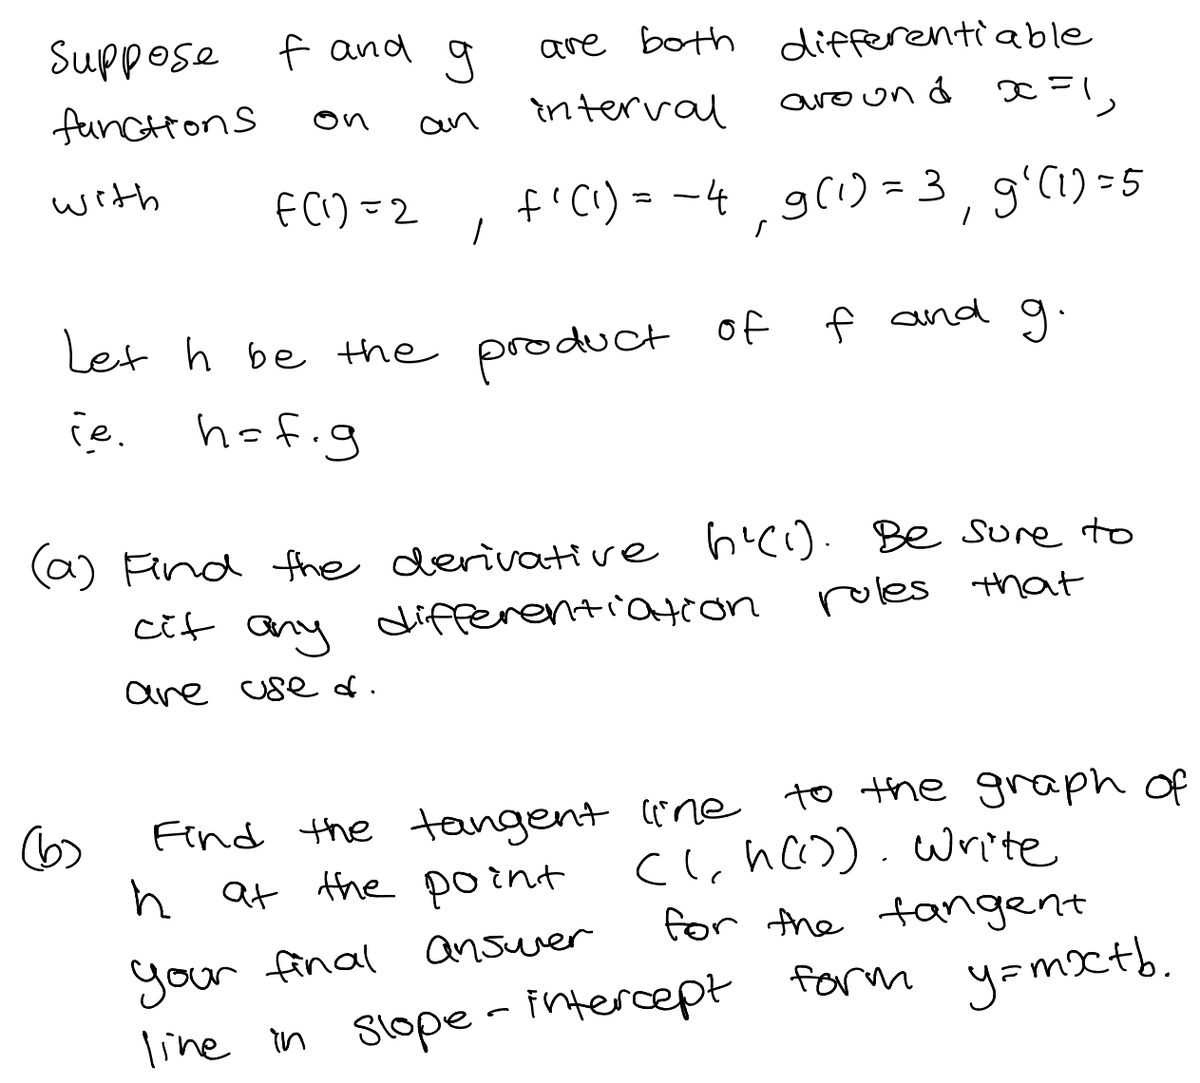 Suppose f and g are both differentiable
functions on an interval around x=1,
with f(1)=2, f'(1)=-4, g(1)=3, g'(1)=5
Let h be the product of f and g.
ie. h=f·g
(a) Find the derivative h'(1). Be sure to
cit any differentiation rules that
are used.
(b) Find the tangent line to the graph of
h at the point (1, h(1)). Write
your final answer for the tangent
line in slope-intercept form y=mx+b.